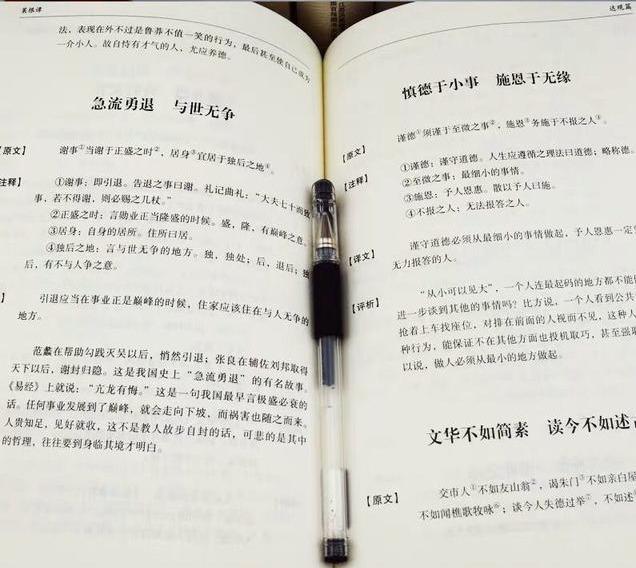 菜根谭
法，表现在外不过是鲁莽不值一笑的行为，最后甚至使自己成为
一介小人。故自恃有才气的人，尤应养德。
急流勇退 与世无争
【原文】 谢事①当谢于正盛之时②，居身③宜居于独后之地④。
注释】 ①谢事：即引退。告退之事曰谢。礼记曲礼：“大夫七十而致
事，若不得谢，则必赐之几杖。”
②正盛之时：言勋业正当隆盛的时候。盛，隆，有巅峰之意。
③居身：自身的居所。住所曰居。
④独后之地：言与世无争的地方。独，独处；后，退后；独
后，有不与人争之意。
】 引退应当在事业正是巅峰的时候，住家应该住在与人无争的
地方。
范蠡在帮助勾践灭吴以后，悄然引退；张良在辅佐刘邦取得
天下以后，谢封归隐。这是我国史上“急流勇退”的有名故事。
《易经》上就说：“亢龙有悔。”这是一句我国最早言极盛必衰的
话。任何事业发展到了巅峰，就会走向下坡，而祸害也随之而来。
人贵知足，见好就收，这不是教人故步自封的话，可悲的是其中
的哲理，往往要到身临其境才明白。
达观篇
慎德于小事 施恩于无缘
【原文】 谨德①须谨于至微之事②，施恩③务施于不报之人④。
【注释】 ①谨德：谨守道德。人生应遵循之理法曰道德；略称德。
②至微之事：最细小的事情。
③施恩：予人恩惠。散以予人曰施。
④不报之人：无法报答之人。
【译文】 谨守道德必须从最细小的事情做起，予人恩惠一定
无力报答的人。
【评析】 “从小可以见大”，一个人连最起码的地方都不能
进一步谈到其他的事情吗？比方说，一个人看到公共
抢着上车找座位，对排在前面的人视而不见，这种人
种行为，能保证不在其他方面也投机取巧，甚至强取
以说，做人必须从最小的地方做起。
文华不如简素 读今不如述
【原文】 交市人①不如友山翁②，谒朱门③不如亲白屋
不如闻樵歌牧咏⑥；谈今人失德过举⑦，不如述